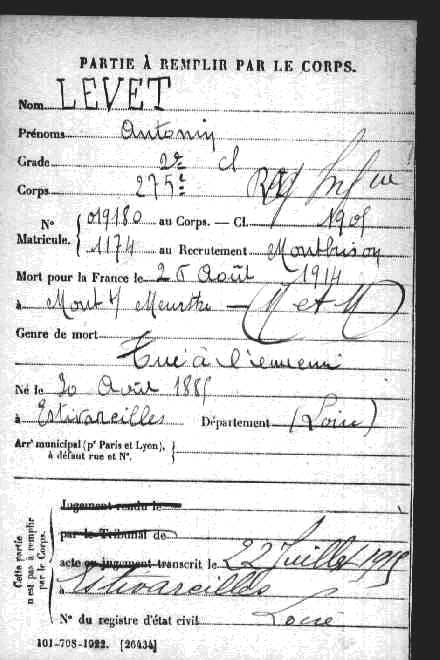 PARTIE À REMPLIR PAR LE CORPS.
Nom LEVET
Prénoms Antonin
Grade 2e cl
Corps 275e Reg Inf
N° Matricule. 019180 au Corps. — Cl. 1905
1174 au Recrutement Montbrison
Mort pour la France le 26 Août 1914
à Mont s/ Meurthe — M et M
Genre de mort
Tué à l'ennemi
Né le 30 Août 1885
à Estivareilles Département (Loire)
Arrt municipal (pr Paris et Lyon),
à défaut rue et N°.
Cette partie n'est pas à remplir par le Corps.
Jugement rendu le
par le Tribunal de
acte ou jugement transcrit le 22 Juillet 1915
à Estivareilles
N° du registre d'état civil Loire
101-708-1922. [26434]